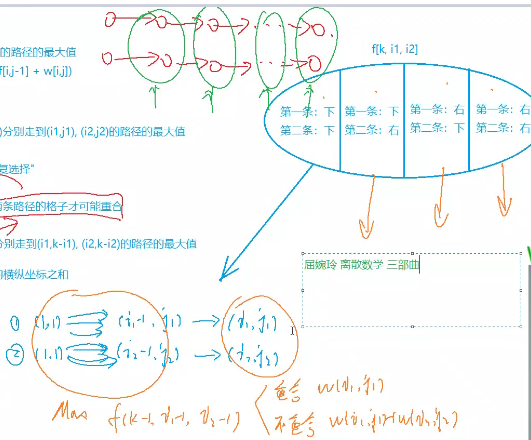 的路径的最大值
f[i,j-1] + w[i,j])
f[k, i1, i2]
第一条：下 第一条：下 第一条：右 第一条：右
第二条：下 第二条：右 第二条：下 第二条：右
)分别走到(i1,j1), (i2,j2)的路径的最大值
复选择"
两条路径的格子才可能重合
分别走到(i1,k-i1), (i2,k-i2)的路径的最大值
的横纵坐标之和
屈婉玲 离散数学 三部曲
① (1,1) (i1-1, j1) → (i1, j1)
② (1,1) (i2-1, j2) → (i2, j2)
Max f(k-1, i1-1, i2-1)
重合 w(i1, j1)
不重合 w(i1, j1)+w(i2, j2)